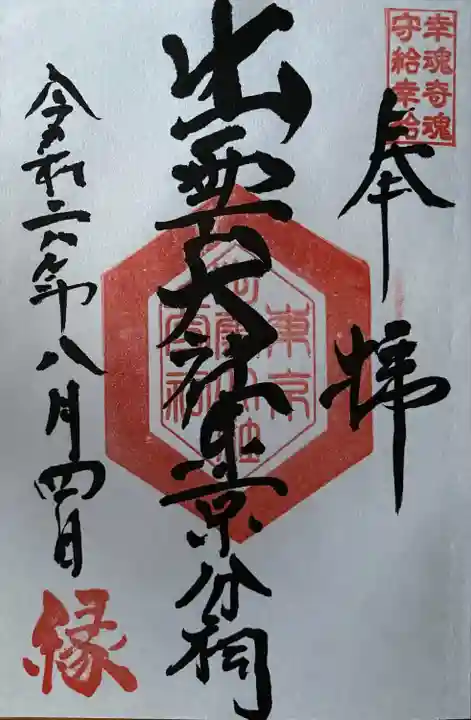 幸魂奇魂
守給幸給
奉拝
出雲大社東京分祠
東京
出雲大社
分祠
令和六年八月四日
縁